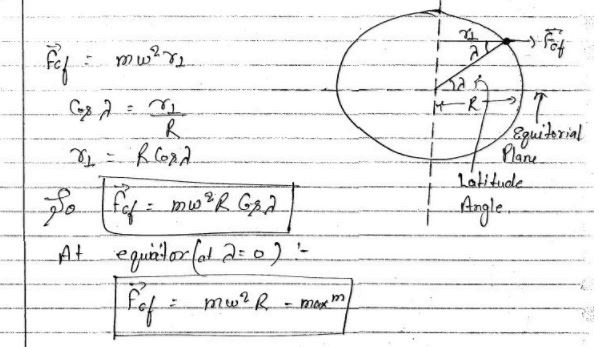 F⃗cf = mω²r⊥
Cos λ = r⊥/R
r⊥ = R Cos λ
So F⃗cf = mω²R Cos λ
At equator (at λ = 0) :-
F⃗cf = mω²R - maxᵐ
r⊥
λ
F⃗cf
λ
R
Equitorial
Plane
Latitude
Angle.